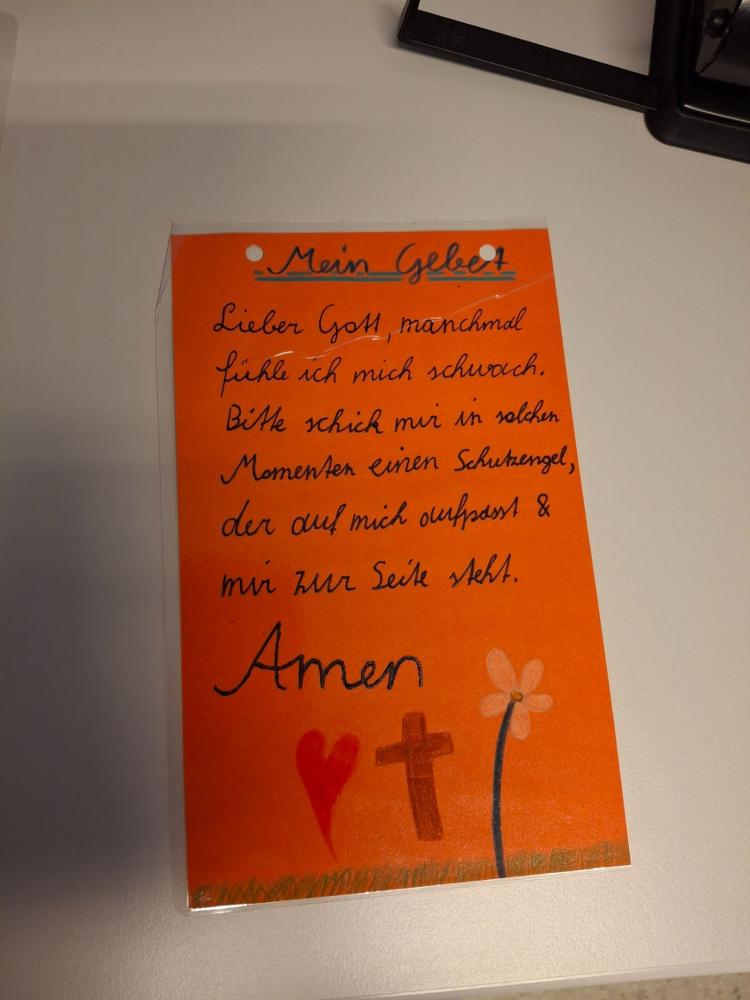 Mein Gebet
Lieber Gott, manchmal
fühle ich mich schwach.
Bitte schick mir in solchen
Momenten einen Schutzengel,
der auf mich aufpasst &
mir zur Seite steht.
Amen